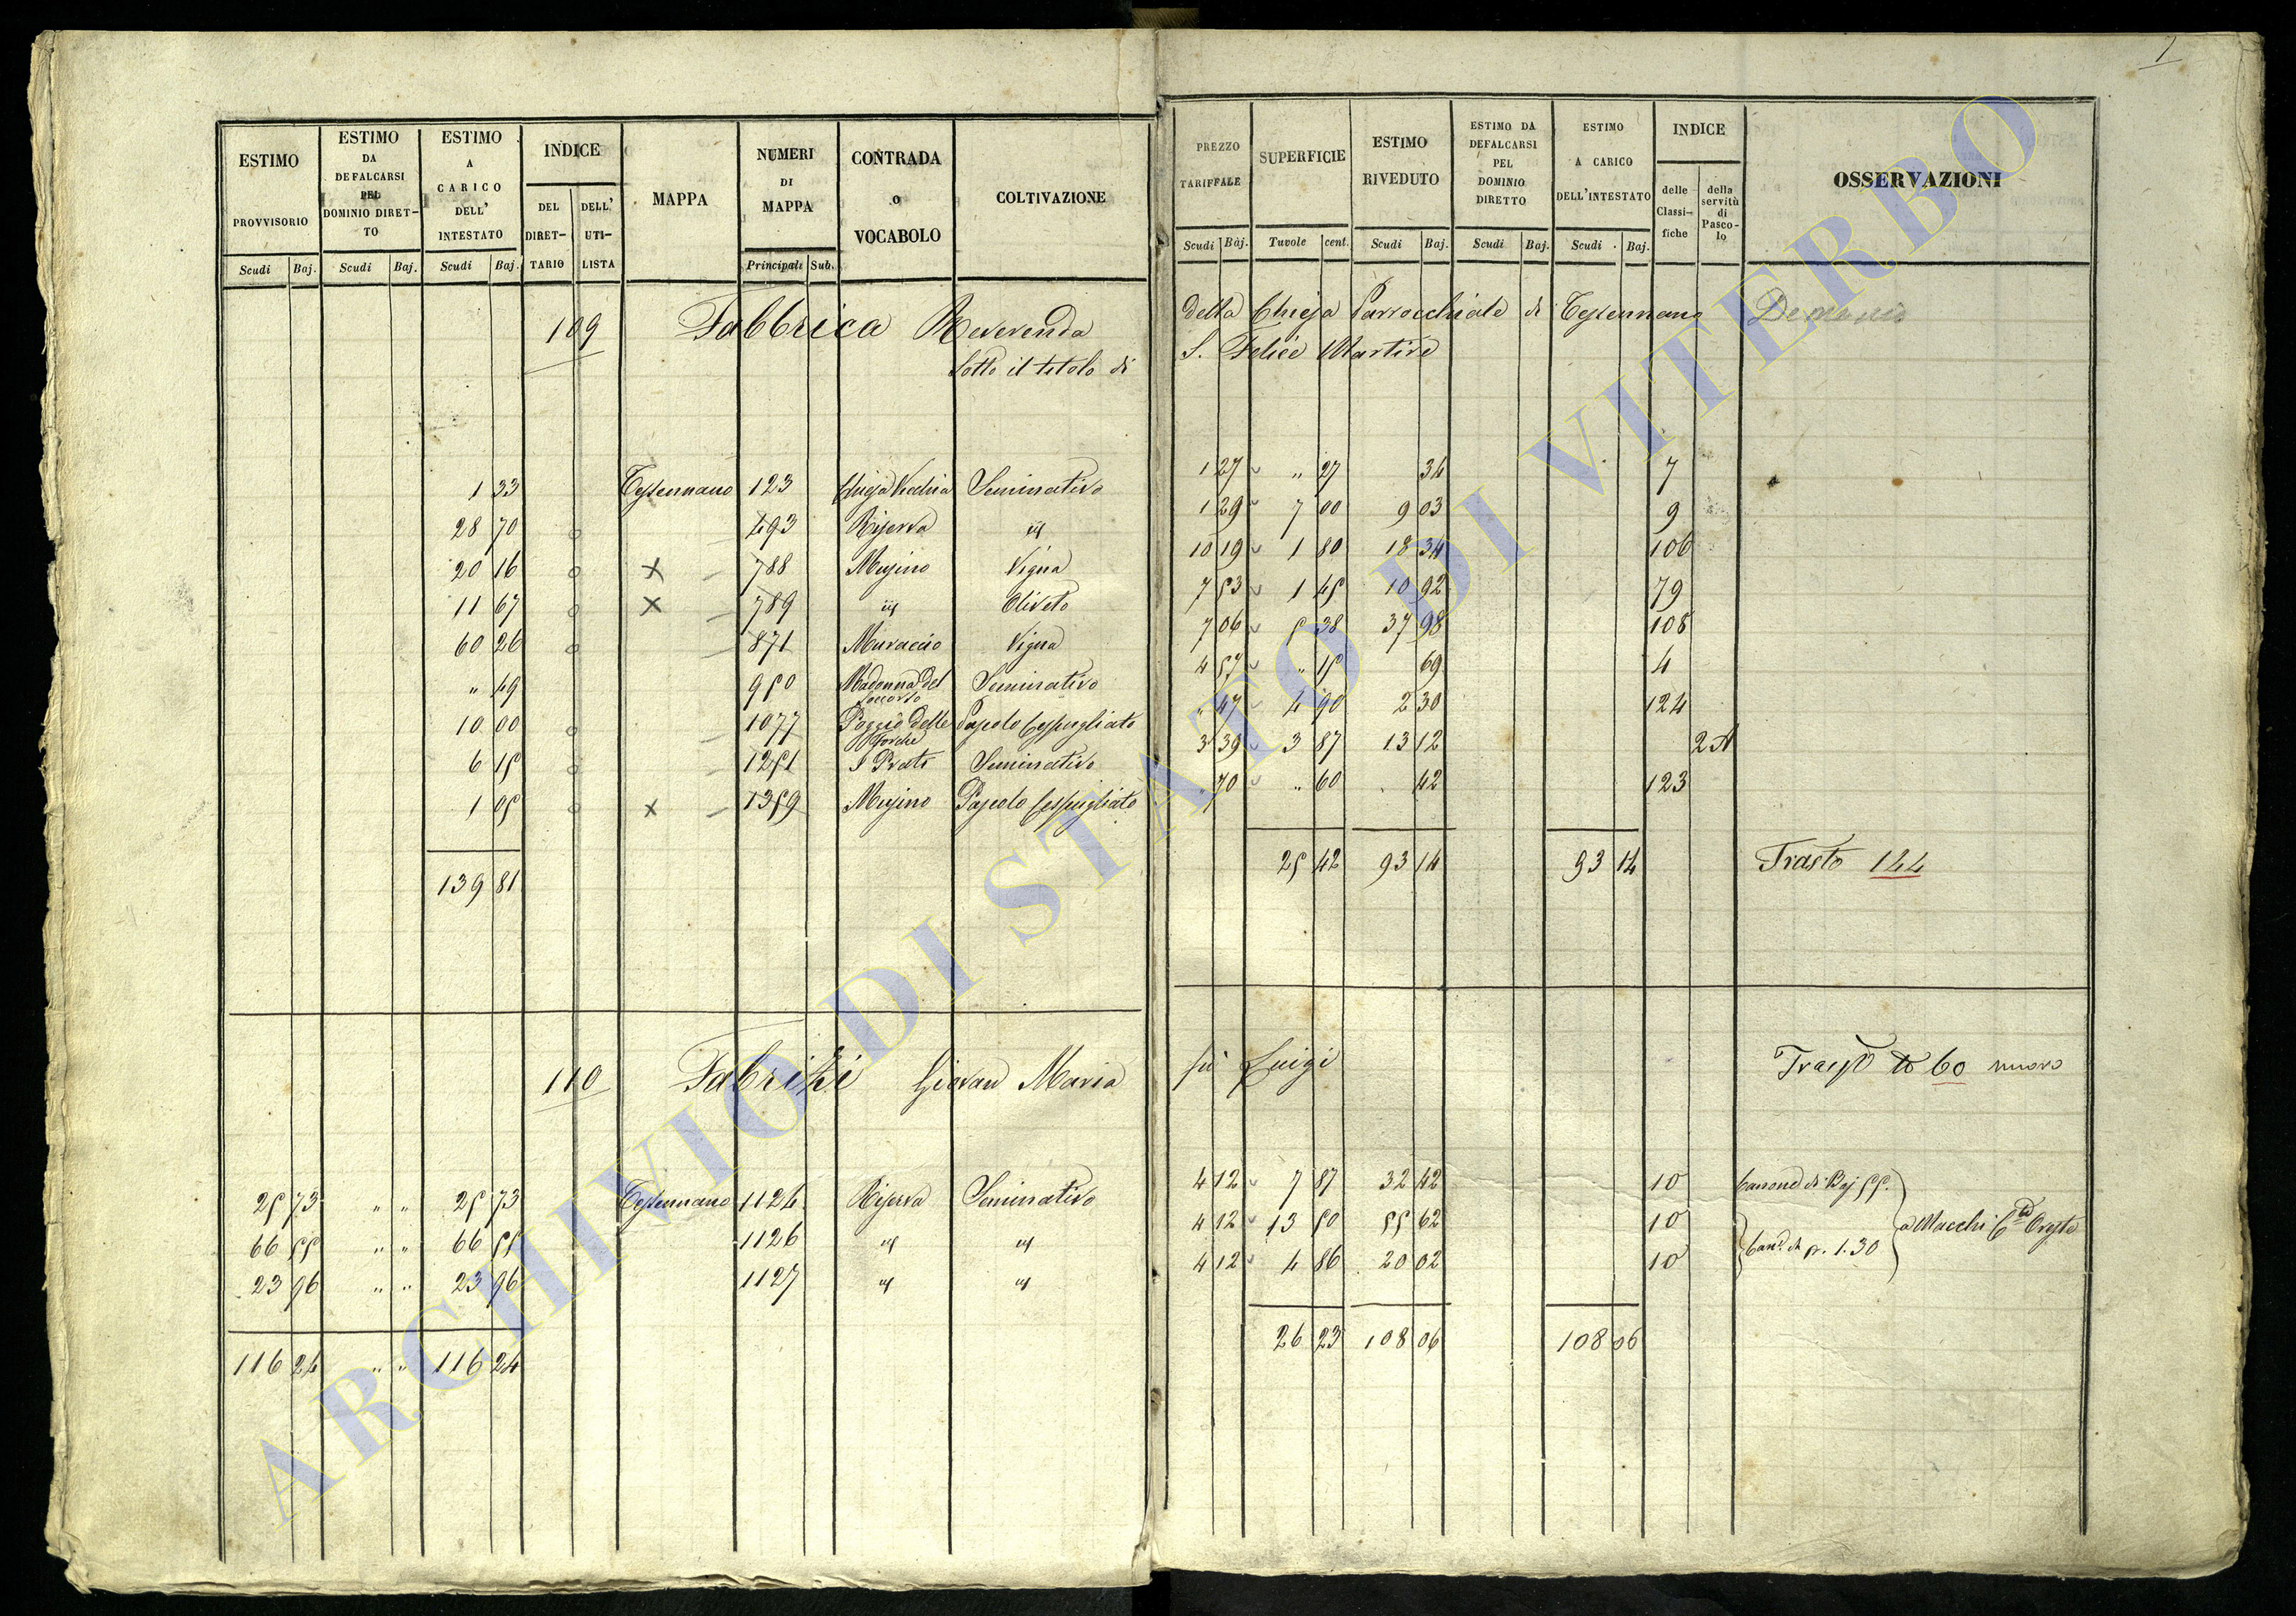 1
ESTIMO PROVVISORIO Scudi Baj.
ESTIMO DA DEFALCARSI PEL DOMINIO DIRET-TO Scudi Baj.
ESTIMO A CARICO DELL' INTESTATO Scudi Baj.
INDICE DEL DIRET-TARIO DELL' UTI-LISTA
MAPPA
NUMERI DI MAPPA Principali Sub.
CONTRADA o VOCABOLO
COLTIVAZIONE
PREZZO TARIFFALE Scudi Baj.
SUPERFICIE Tavole cent.
ESTIMO RIVEDUTO Scudi Baj.
ESTIMO DA DEFALCARSI PEL DOMINIO DIRETTO Scudi Baj.
ESTIMO A CARICO DELL'INTESTATO Scudi Baj.
INDICE delle Classi-fiche della servitù di Pasco-lo
OSSERVAZIONI
109 Fabbrica Reverenda della Chiesa Parrocchiale di Tessennano Demanio
Sotto il titolo di S. Felice Martire
1 33 Tessennano 123 Chiesa Vecchia Seminativo 1 27 " 27 34 7
28 70 493 Riserva id 1 29 7 00 9 03 9
20 16 X 788 Mugino Vigna 10 19 1 80 18 34 106
11 67 X 789 id Oliveto 7 53 1 45 10 92 79
60 26 871 Muraccio Vigna 7 06 5 38 37 98 108
" 49 950 Madonna del Soccorso Seminativo 4 57 " 15 69 4
10 00 1077 Poggio delle Forche Pascolo Cespugliato " 47 4 90 2 30 124
6 15 1251 I Prati Seminativo 3 39 3 87 13 12 2 A
1 05 X 1359 Mugino Pascolo Cespugliato " 70 " 60 42 123
139 81 25 42 93 14 93 14 Trasto 144
110 Fabrizi Giovan Maria fu Luigi Trasto 60 nuovo
25 73 " " 25 73 Tessennano 1124 Riserva Seminativo 4 12 7 87 32 42 10 Canone di Baj 55.
66 55 " " 66 55 1126 id id 4 12 13 50 55 62 10 a Macchi Oreste
23 96 " " 23 96 1127 id id 4 12 4 86 20 02 10 Can. di 1.30
116 24 " " 116 24 26 23 108 06 108 06
ARCHIVIO DI STATO DI VITERBO